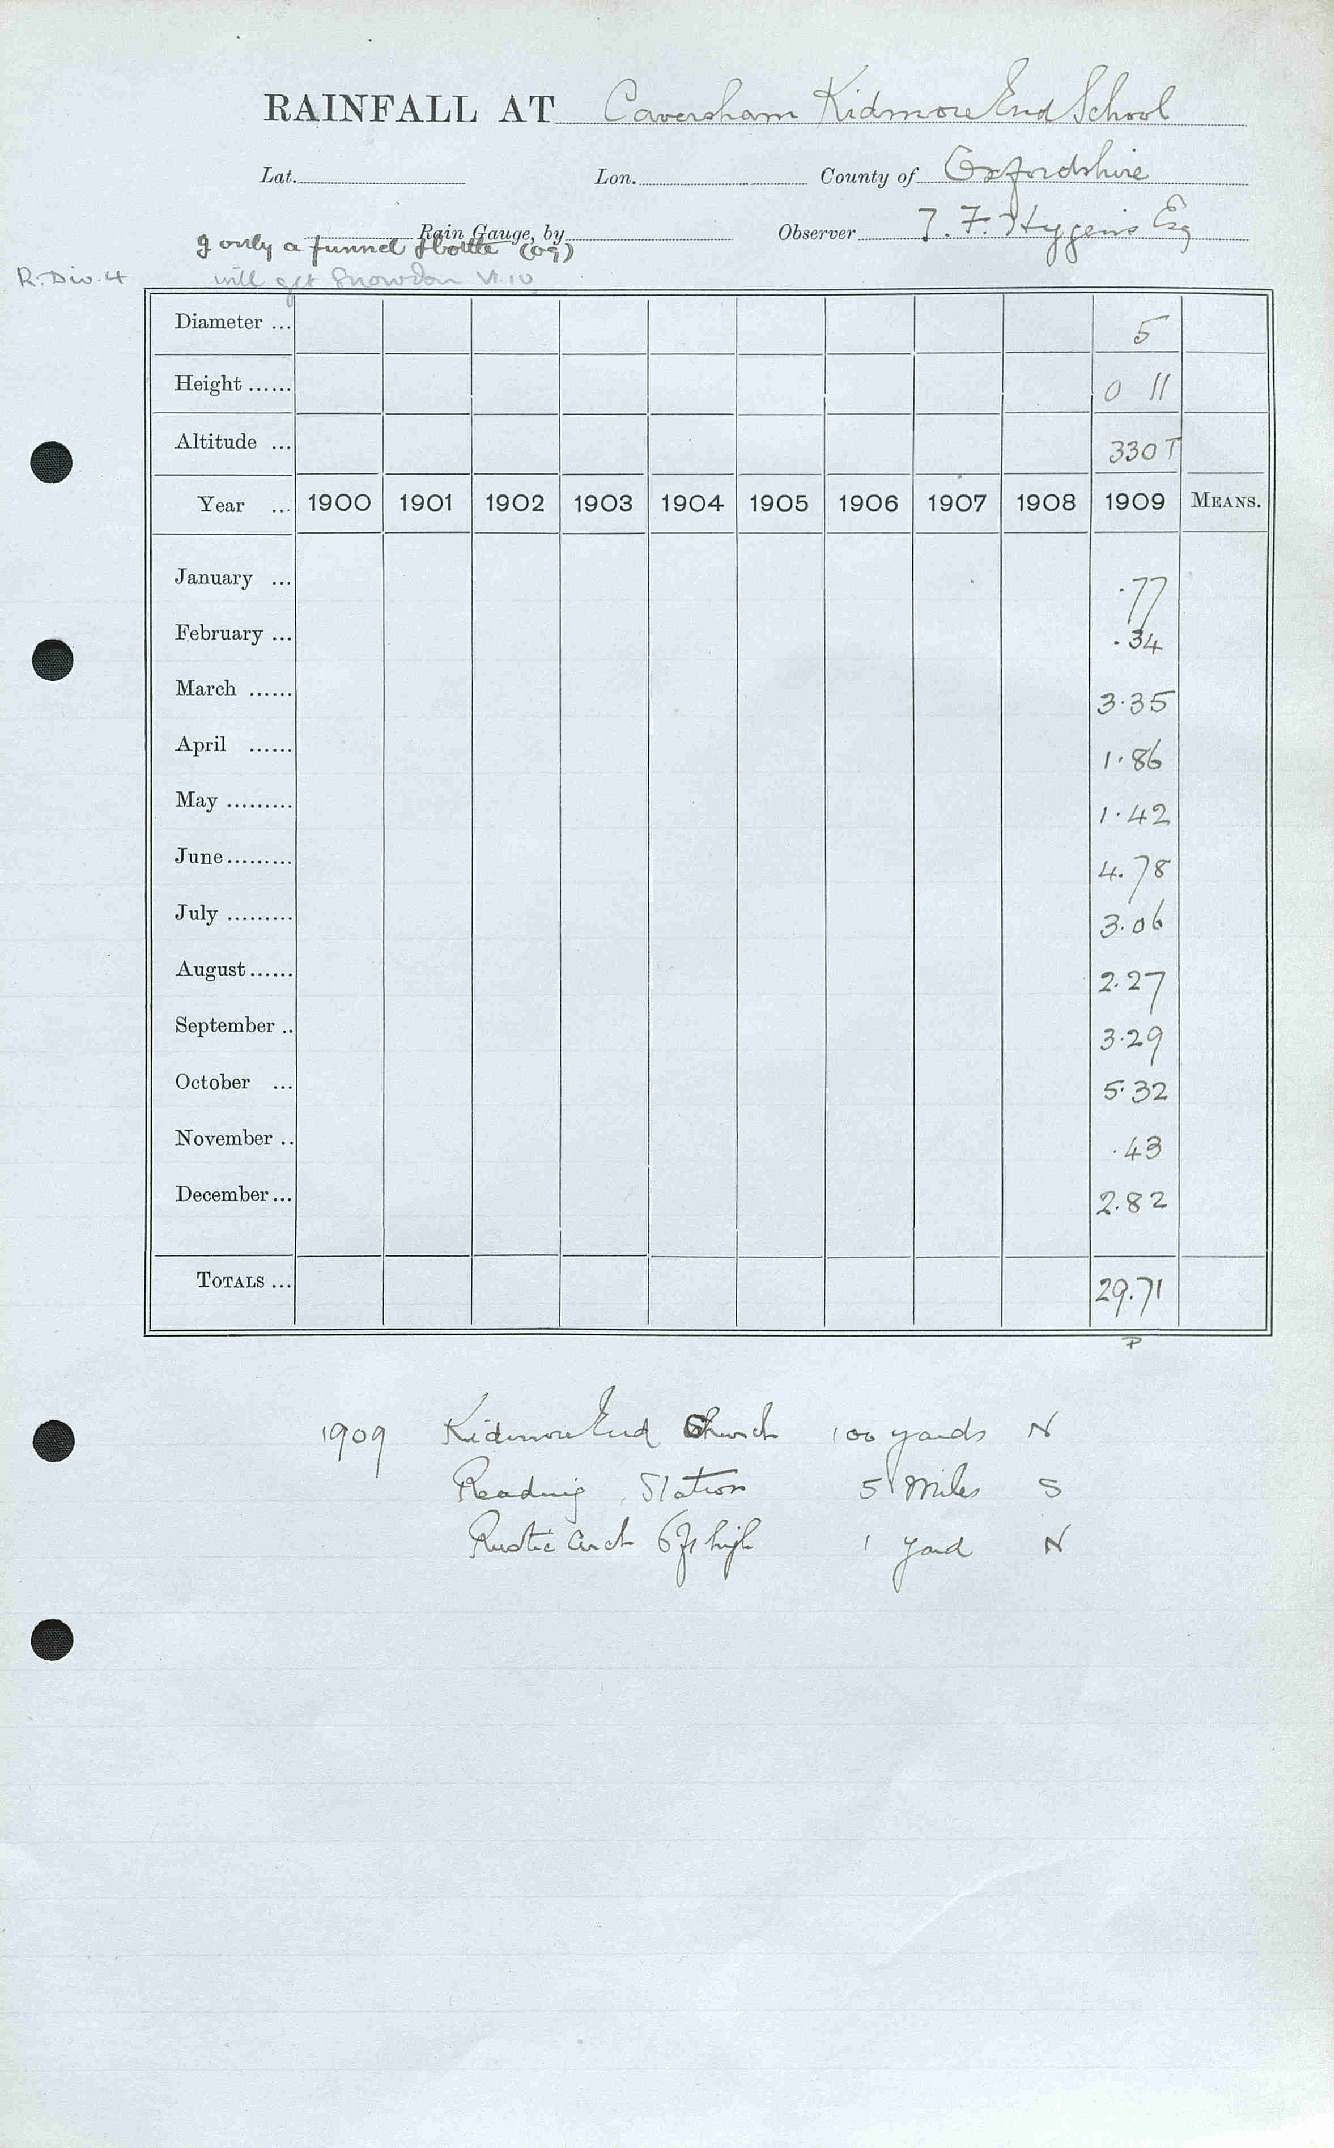 RAINFALL AT Caversham Kidmore End School
Lat. Lon. County of Oxfordshire
Rain Gauge, by Observer J. F. Higgins Esq
g only a funnel & bottle (09)
R. Div. 4 will get Snowdon VI.10
Diameter ... 5
Height ...... 0 11
Altitude ... 330 T
Year ... 1900 1901 1902 1903 1904 1905 1906 1907 1908 1909 MEANS.
January ... .77
February ... .34
March ...... 3.35
April ...... 1.86
May ......... 1.42
June ......... 4.78
July ......... 3.06
August ...... 2.27
September .. 3.29
October ... 5.32
November .. .43
December ... 2.82
TOTALS ... 29.71
P
1909 Kidmore End Church 100 yards N
Reading Station 5 Miles S
Rustic arch 6 ft high 1 yard N